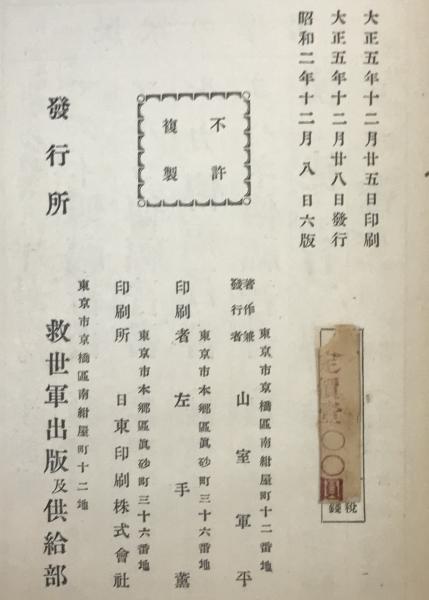 大正五年十二月廿五日印刷
大正五年十二月廿八日發行
昭和二年十二月八日六版
定價壹〇〇圓
稅
錢
不許
複製
東京市京橋區南紺屋町十二番地
著作兼
發行者
山室軍平
東京市本鄉區眞砂町三十六番地
印刷者 左手薰
東京市本鄉區眞砂町三十六番地
印刷所 日東印刷株式會社
東京市京橋區南紺屋町十二地
發行所 救世軍出版及供給部